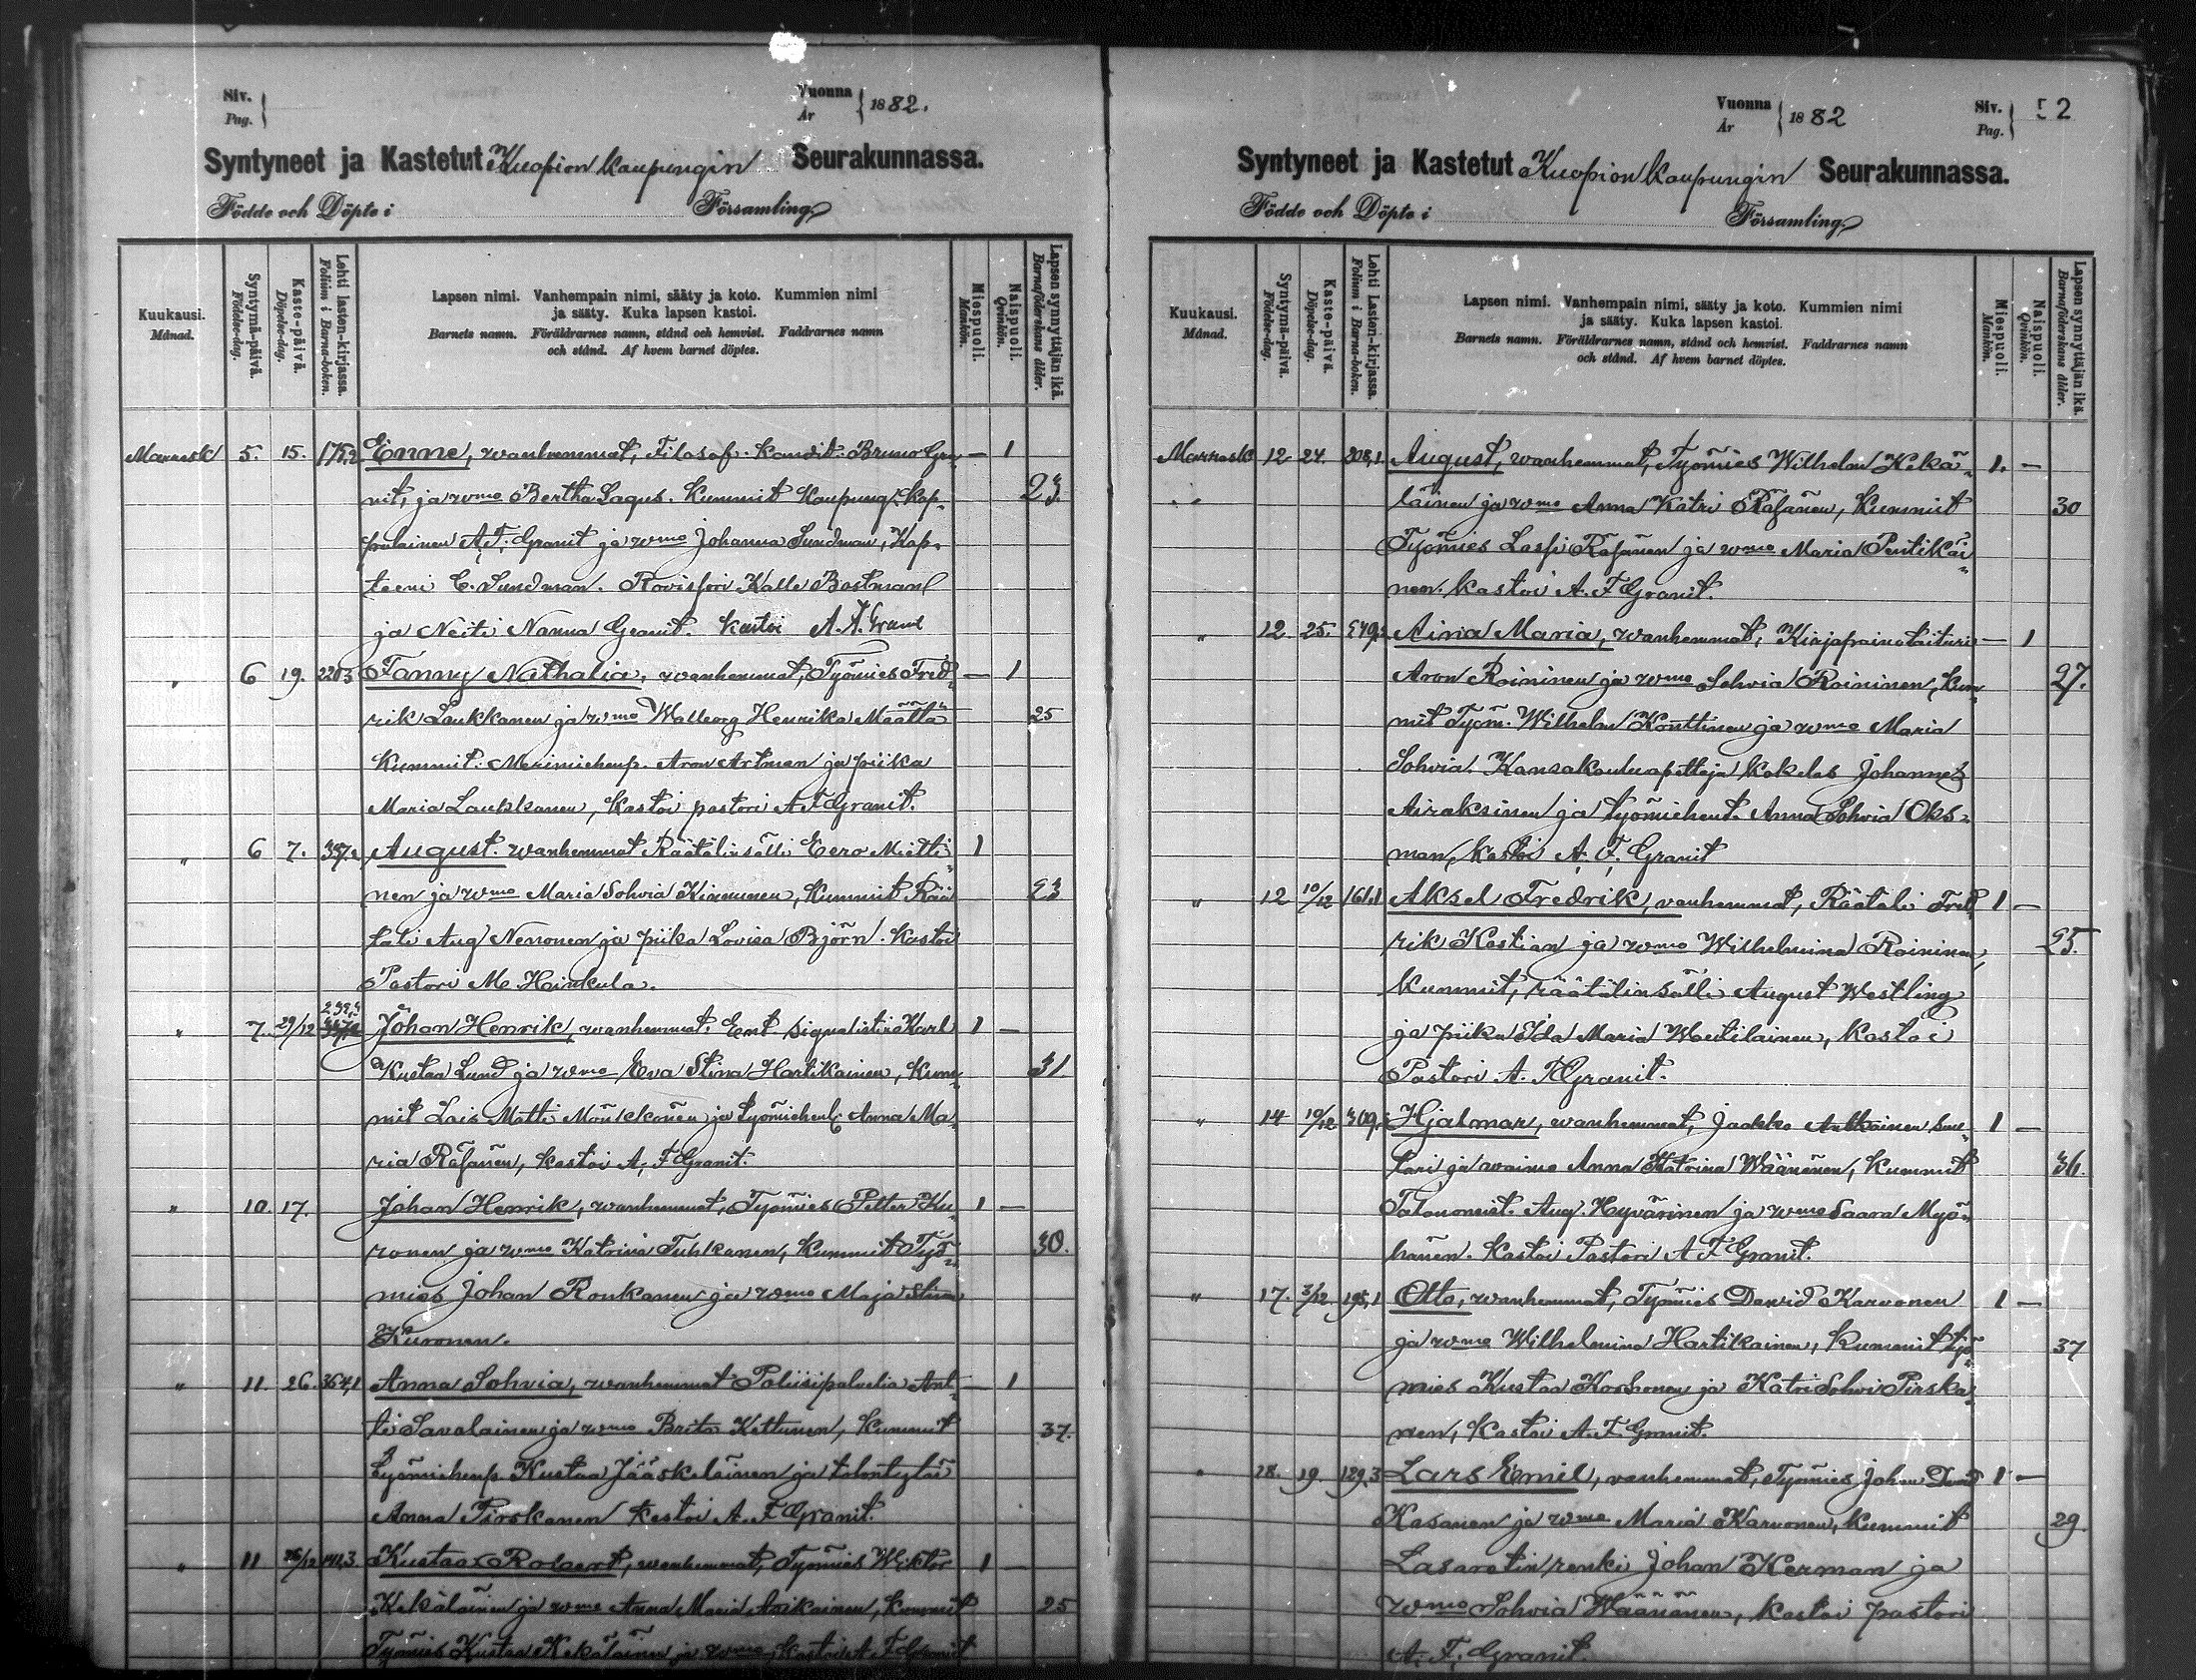 Siv.
Pag.
Vuonna
År
1882.
Syntyneet ja Kastetut Kuopion kaupungin Seurakunnassa.
Födde och Döpte i Församling
Kuukausi.
Månad.
Syntymä-päivä.
Födelse-dag.
Kaste-päivä.
Döpelse-dag.
Lehti lasten-kirjassa.
Folium i Barna-boken.
Lapsen nimi. Vanhempain nimi, sääty ja koto. Kummien nimi
ja sääty. Kuka lapsen kastoi.
Barnets namn. Föräldrarnes namn, stånd och hemvist. Faddrarnes namn
och stånd. Af hvem barnet döptes.
Miespuoli.
Mankön.
Naispuoli.
Qvinkön.
Lapsen synnyttäjän ikä.
Barnaföderskans ålder.
Marrask 5. 15. 175,2 Enne, wanhemmat, Filosof. kandit. Bruno Gra- — 1
nit, ja wmo Bertha Sagus. Kummit Kaupung. kap- 23
palainen A. F. Granit ja wmo Johanna Sundman, Kap-
teeni C. Sundman. Rovisori Kalle Bostman
ja Neiti Nanna Granit. Kastoi A. F. Granit
" 6 19. Fanny Nathalia, wanhemmat, Työmies Fred- — 1
rik Laukkanen ja wmo Walborg Henrika Määttä 25
Kummit: Merimiehenp. Aron Artman ja piika
Maria Laukkanen, Kastoi pastori A. F. Granit.
" 6 7. August. wanhemmat Räätälinsälli Eero Mietti- 1
nen ja wmo Maria Sohvia Kinnunen, Kummit Rää- 23
tali Aug Nenonen ja piika Lovisa Björn. Kastoi
Pastori M. Heinkula.
239,3
" 7. 29/12 Johan Henrik, wanhemmat, Ent signalisti Karl 1 —
Kustaa Lund ja wmo Eva Stina Hartikainen, Kum- 31
mit Lais Matti Mönkkönen ja työmiehenl. Anna Ma-
ria Räsänen, kastoi A. F. Granit.
" 10. 17. Johan Henrik, wanhemmat, Työmies Petter Ku- 1 —
ronen ja wmo Katrina Tuhkanen, Kummit Työ- 30.
mies Johan Ronkanen ja wmo Maja Stina
Kuronen.
" 11. 26. 364,1 Anna Sohvia, wanhemmat Poliisipalvelia Ant- — 1
ti Savalainen ja wmo Brita Kettunen, Kummit 37.
työmiehenp. Kustaa Jääskeläinen ja talontytär
Anna Pirskanen kastoi A. F. Granit.
" 11 26/12 Kustaa Robert, wanhemmat, Työmies Wiktor 1 —
Kekäläinen ja wmo Anna Maria Asikainen, Kummit 25
Työmies Kustaa Kekäläinen ja wmo, kastoi A. F. Granit
Vuonna
År
1882
Siv.
Pag.
52
Syntyneet ja Kastetut Kuopion kaupungin Seurakunnassa.
Födde och Döpte i Församling
Kuukausi.
Månad.
Syntymä-päivä.
Födelse-dag.
Kaste-päivä.
Döpelse-dag.
Lehti lasten-kirjassa.
Folium i Barna-boken.
Lapsen nimi. Vanhempain nimi, sääty ja koto. Kummien nimi
ja sääty. Kuka lapsen kastoi.
Barnets namn. Föräldrarnes namn, stånd och hemvist. Faddrarnes namn
och stånd. Af hvem barnet döptes.
Miespuoli.
Mankön.
Naispuoli.
Qvinkön.
Lapsen synnyttäjän ikä.
Barnaföderskans ålder.
Marrask 12 24. 208,1 August, wanhemmat, Työmies Wilhelm Kekä- 1. —
läinen ja wmo Anna Katri Räsänen, Kummit 30
Työmies Laspi Räsänen ja wmo Maria Pentikäi-
nen. kastoi A. F. Granit.
" 12 25. Aina Maria, wanhemmat, Kirjapainotaituri — 1
Aron Roininen ja wmo Sohvia Roininen, Kum- 27.
mit Työm. Wilhelm Konttinen ja wmo Maria
Sohvia. Kansakouluapettaja kokelas Johannes
Airaksinen ja työmiehent. Anna Sohvia Oks-
man, kastoi A. F. Granit
" 12 10/12 161,1 Aksel Fredrik, vanhemmat, Räätäli Fred- 1 —
rik Kostian ja wmo Wilhelmina Roininen, 25.
Kummit, räätälinsälli August Westling
ja piika Ida Maria Wentilainen, kastoi
Pastori A. F. Granit.
" 14 10/12 Hjalmar, wanhemmat, Jaakko Antkainen Suu- 1 —
tari ja waimo Anna Katrina Wäänänen, Kummit 36.
Talonomist. Aug. Hyvärinen ja wmo Saara Myö-
hänen. Kastoi Pastori A. F. Granit.
" 17. 3/12. 195,1 Otto, wanhemmat, Työmies David Karvonen 1 —
ja wmo Wilhelmina Hartikainen, Kummit työ- 37
mies Kustaa Korhonen ja Katri Sohvi Pirska-
nen, Kastoi A. F. Granit.
" 28. 19. 129,3 Lars Emil, vanhemmat, Työmies Johan David 1 —
Kasanen ja wmo Maria Karvonen, Kummit 29
Lasaretin renki Johan Herman ja
wmo Sohvia Wäänänen, kastoi pastori
A. F. Granit.